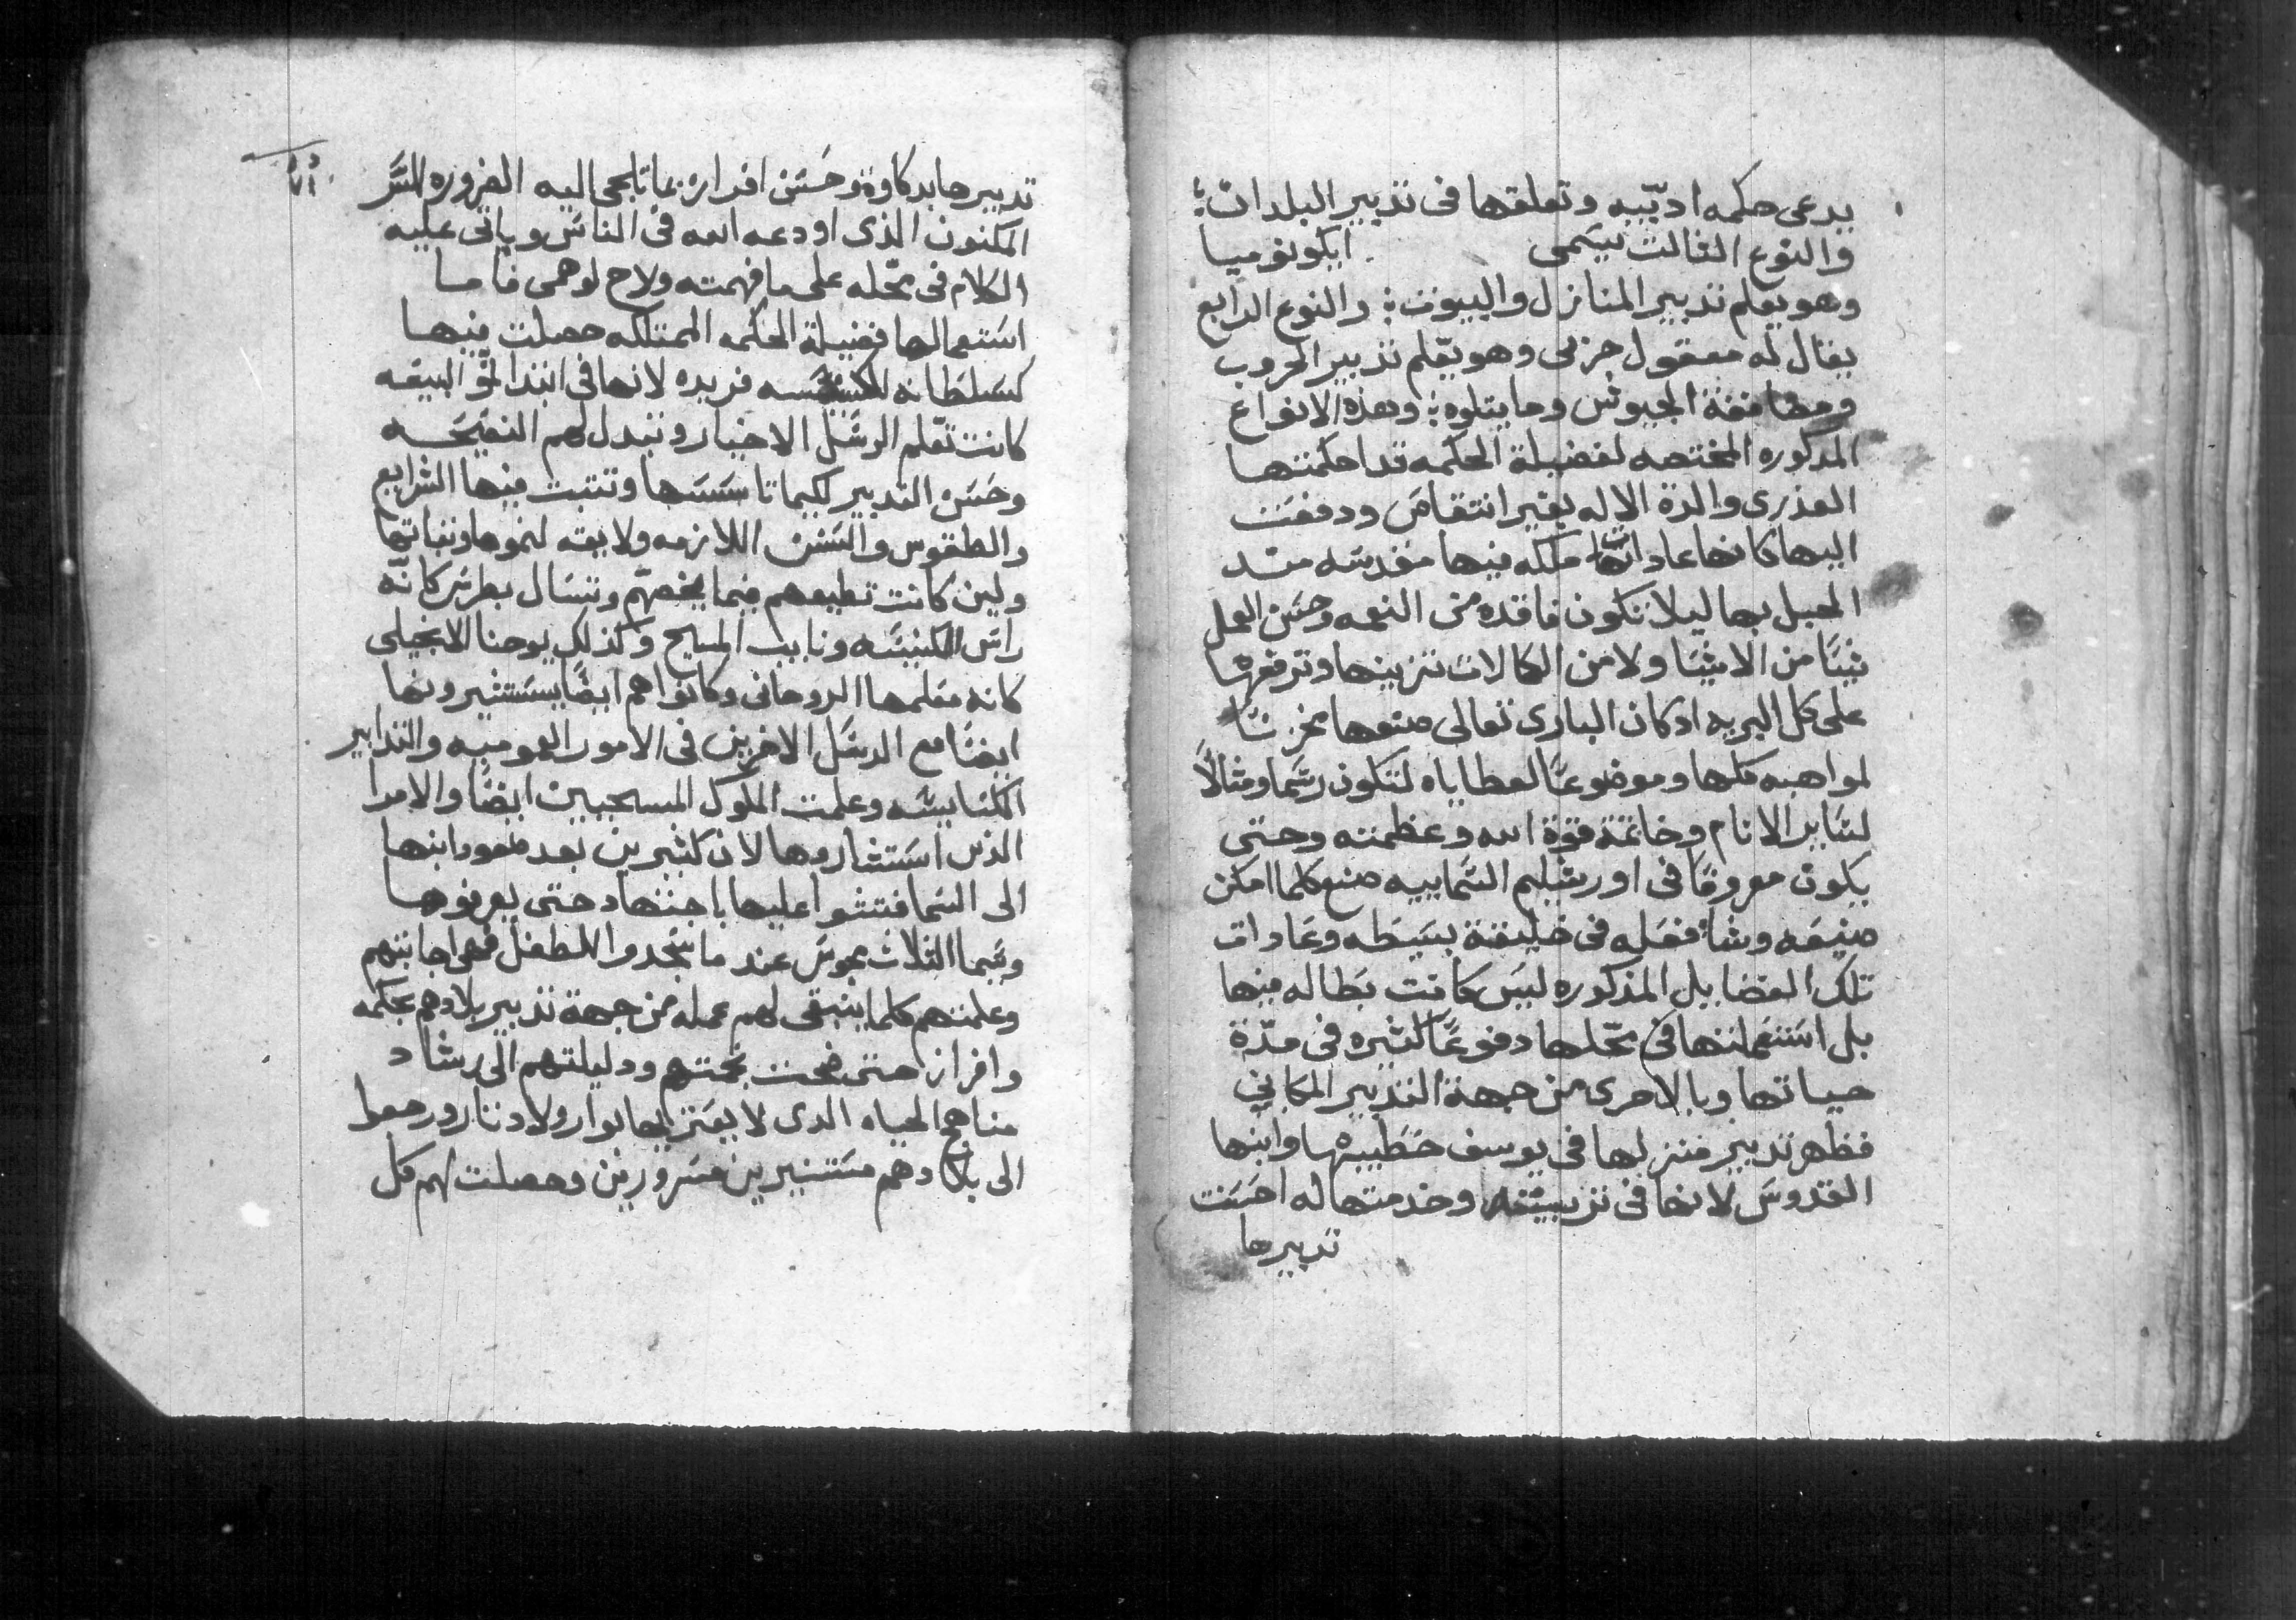 يدعى حكمه ادبّيه وتعلقها فى تدبير البلدان؛
والنوع الثالث يسَمى ايكونوميا
وهو يعلم تدبير المنازل والبيوت؛ والنوع الرابع
يقال له معقول جزيى وهو يعّلم تدبير الحروب
ومصاففة الجيوش وما يتلوه؛ وهذه الانواع
المدكوره المختصه لفضيلة الحكمه قد احكمتها
العذرى والدة الاله بغير انتقاص ودفعَت
اليها كانها عاداتها ملكه فيها مقدسَه منـد
الحبل بها ليلا تكون فاقده من النعمه وحسَن العمل
شيًا من الاشيَا ولا من الكمالات تزينها وترفعها
على كل البريه ادكان البارى تعالى صنعها مخزنًا
لمواهبه كلها وموضوعًا لعطاياه لتكون رسَما ومثالاً
لسَاير الانام وخاتمة قوّة الله وعظمته وحتى
يكون معروفًا فى اورشليم السَمايييه صنع كلما امكن
صنيعَه وشأ فعَله فى خليقة بسَيطَه وعَادات
تلك الفضايل المذكوره ليسَ كانت بَطاله فيها
بل استَعَملتها فى محّلها دفوعًا كثيره فى مدّة
حياتها وبالاحرى من جهة التدبير المكاني
فظهر تدبير منزلها فى يوسف خطَيبها وابنها
القدوسَ لانها فى تربيتَه وخدمتها له احسَنت
تدبيرها
تدبيرها بدكاوة وحسَن افراز بما تلجى اليه الضروره السَر
المكنون الذى اودعه الله فى الناسَ وياتى عليه
الكلام فى محّله على ما فهمته ولاح لوهمى فاما
استَعمالها فضيلة الحكمه الممتلكه حصلت فيها
كسَلطانه فريده لانها فى ابتدا نموّ البيعَه
كانت تعّلم الرسَل الاخيار وتبدل لهم النصَيحَـه
وحسَن التدبير لكيما تاسَسَها وتتبت فيها الشرايع
والطقوس والسَنن اللازمه ولايقه لنموها وثباتها
ولين كانت تطيعهم فيما يخصّهم وتسَال بطرسَ كانّه
راسَ الكنيسَه ونايب المسيح وكذلك يوحنا الانجيلى
كانه معَلمها الروحانى وكانوا هم ايضًا يسَتشيرونها
ايضًا مع الرسَل الاخرين فى الامور العموميه والتدابير
الكنايسَيه وعلمت الملوك المسيحيين ايضًا والامرا
الذين استَشاروها لان كثيرين بعد صعود ابنها
الى السَما فتشوا عليها باجتهاد حتى يعرفوها
وسَيما الثلاث مجوسَ عند ما سَجدوا للطفل فهى اجابتهم
وعلمتهم كلما ينبغى لهم عمله من جهة تدبير بلادهم بحكمه
وافراز حتى ضحت نجمتهم ودليلتهم الى رشاد
مناهج الحياه الدى لا يعَتريها بوار ولا دثار ورجعوا
الى بلادهم مستَنيرين مسَرورين وحصلت لهم كل